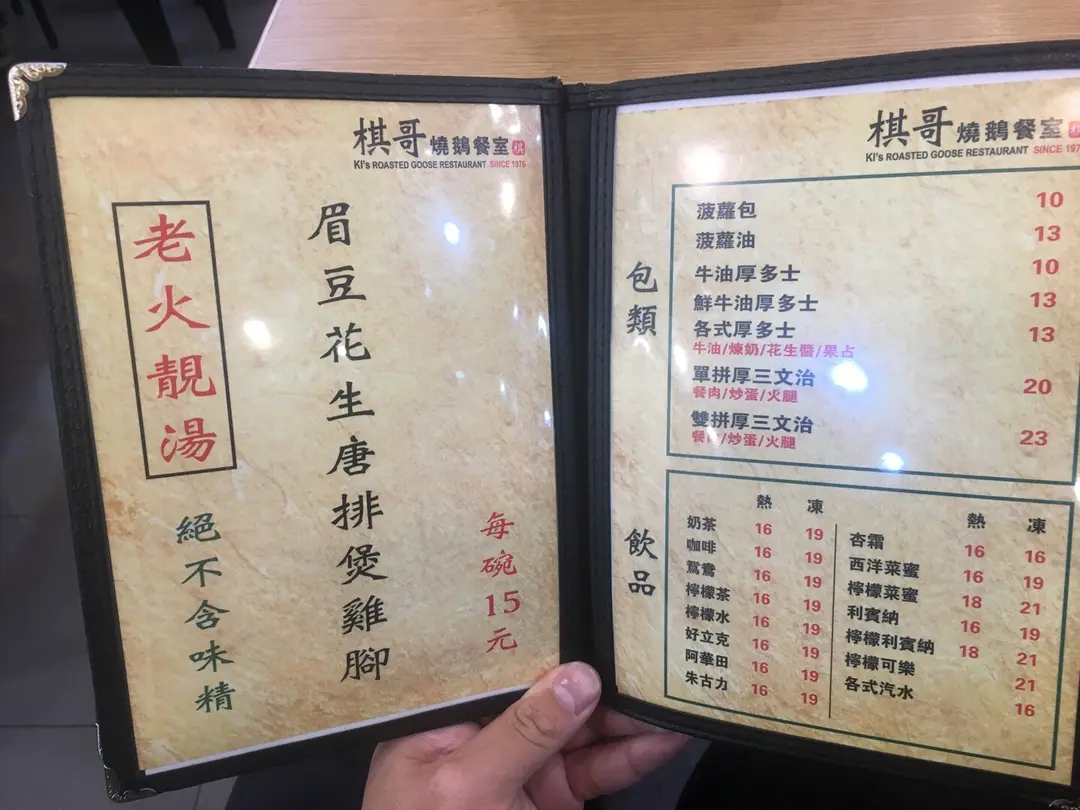 棋哥燒鵝餐室 棋
KI's ROASTED GOOSE RESTAURANT SINCE 1976
老火靚湯
眉豆花生唐排煲雞腳
絕不含味精
每碗15元
棋哥燒鵝餐室
KI's ROASTED GOOSE RESTAURANT SINCE 197
包類
菠蘿包 10
菠蘿油 13
牛油厚多士 10
鮮牛油厚多士 13
各式厚多士 13
牛油/煉奶/花生醬/果占
單拼厚三文治 20
餐肉/炒蛋/火腿
雙拼厚三文治 23
餐肉/炒蛋/火腿
飲品
熱 凍
奶茶 16 19
咖啡 16 19
鴛鴦 16 19
檸檬茶 16 19
檸檬水 16 19
好立克 16 19
阿華田 16 19
朱古力 16 19
熱 凍
杏霜 16 16
西洋菜蜜 16 19
檸檬菜蜜 18 21
利賓納 16 19
檸檬利賓納 18 21
檸檬可樂 21
各式汽水 16